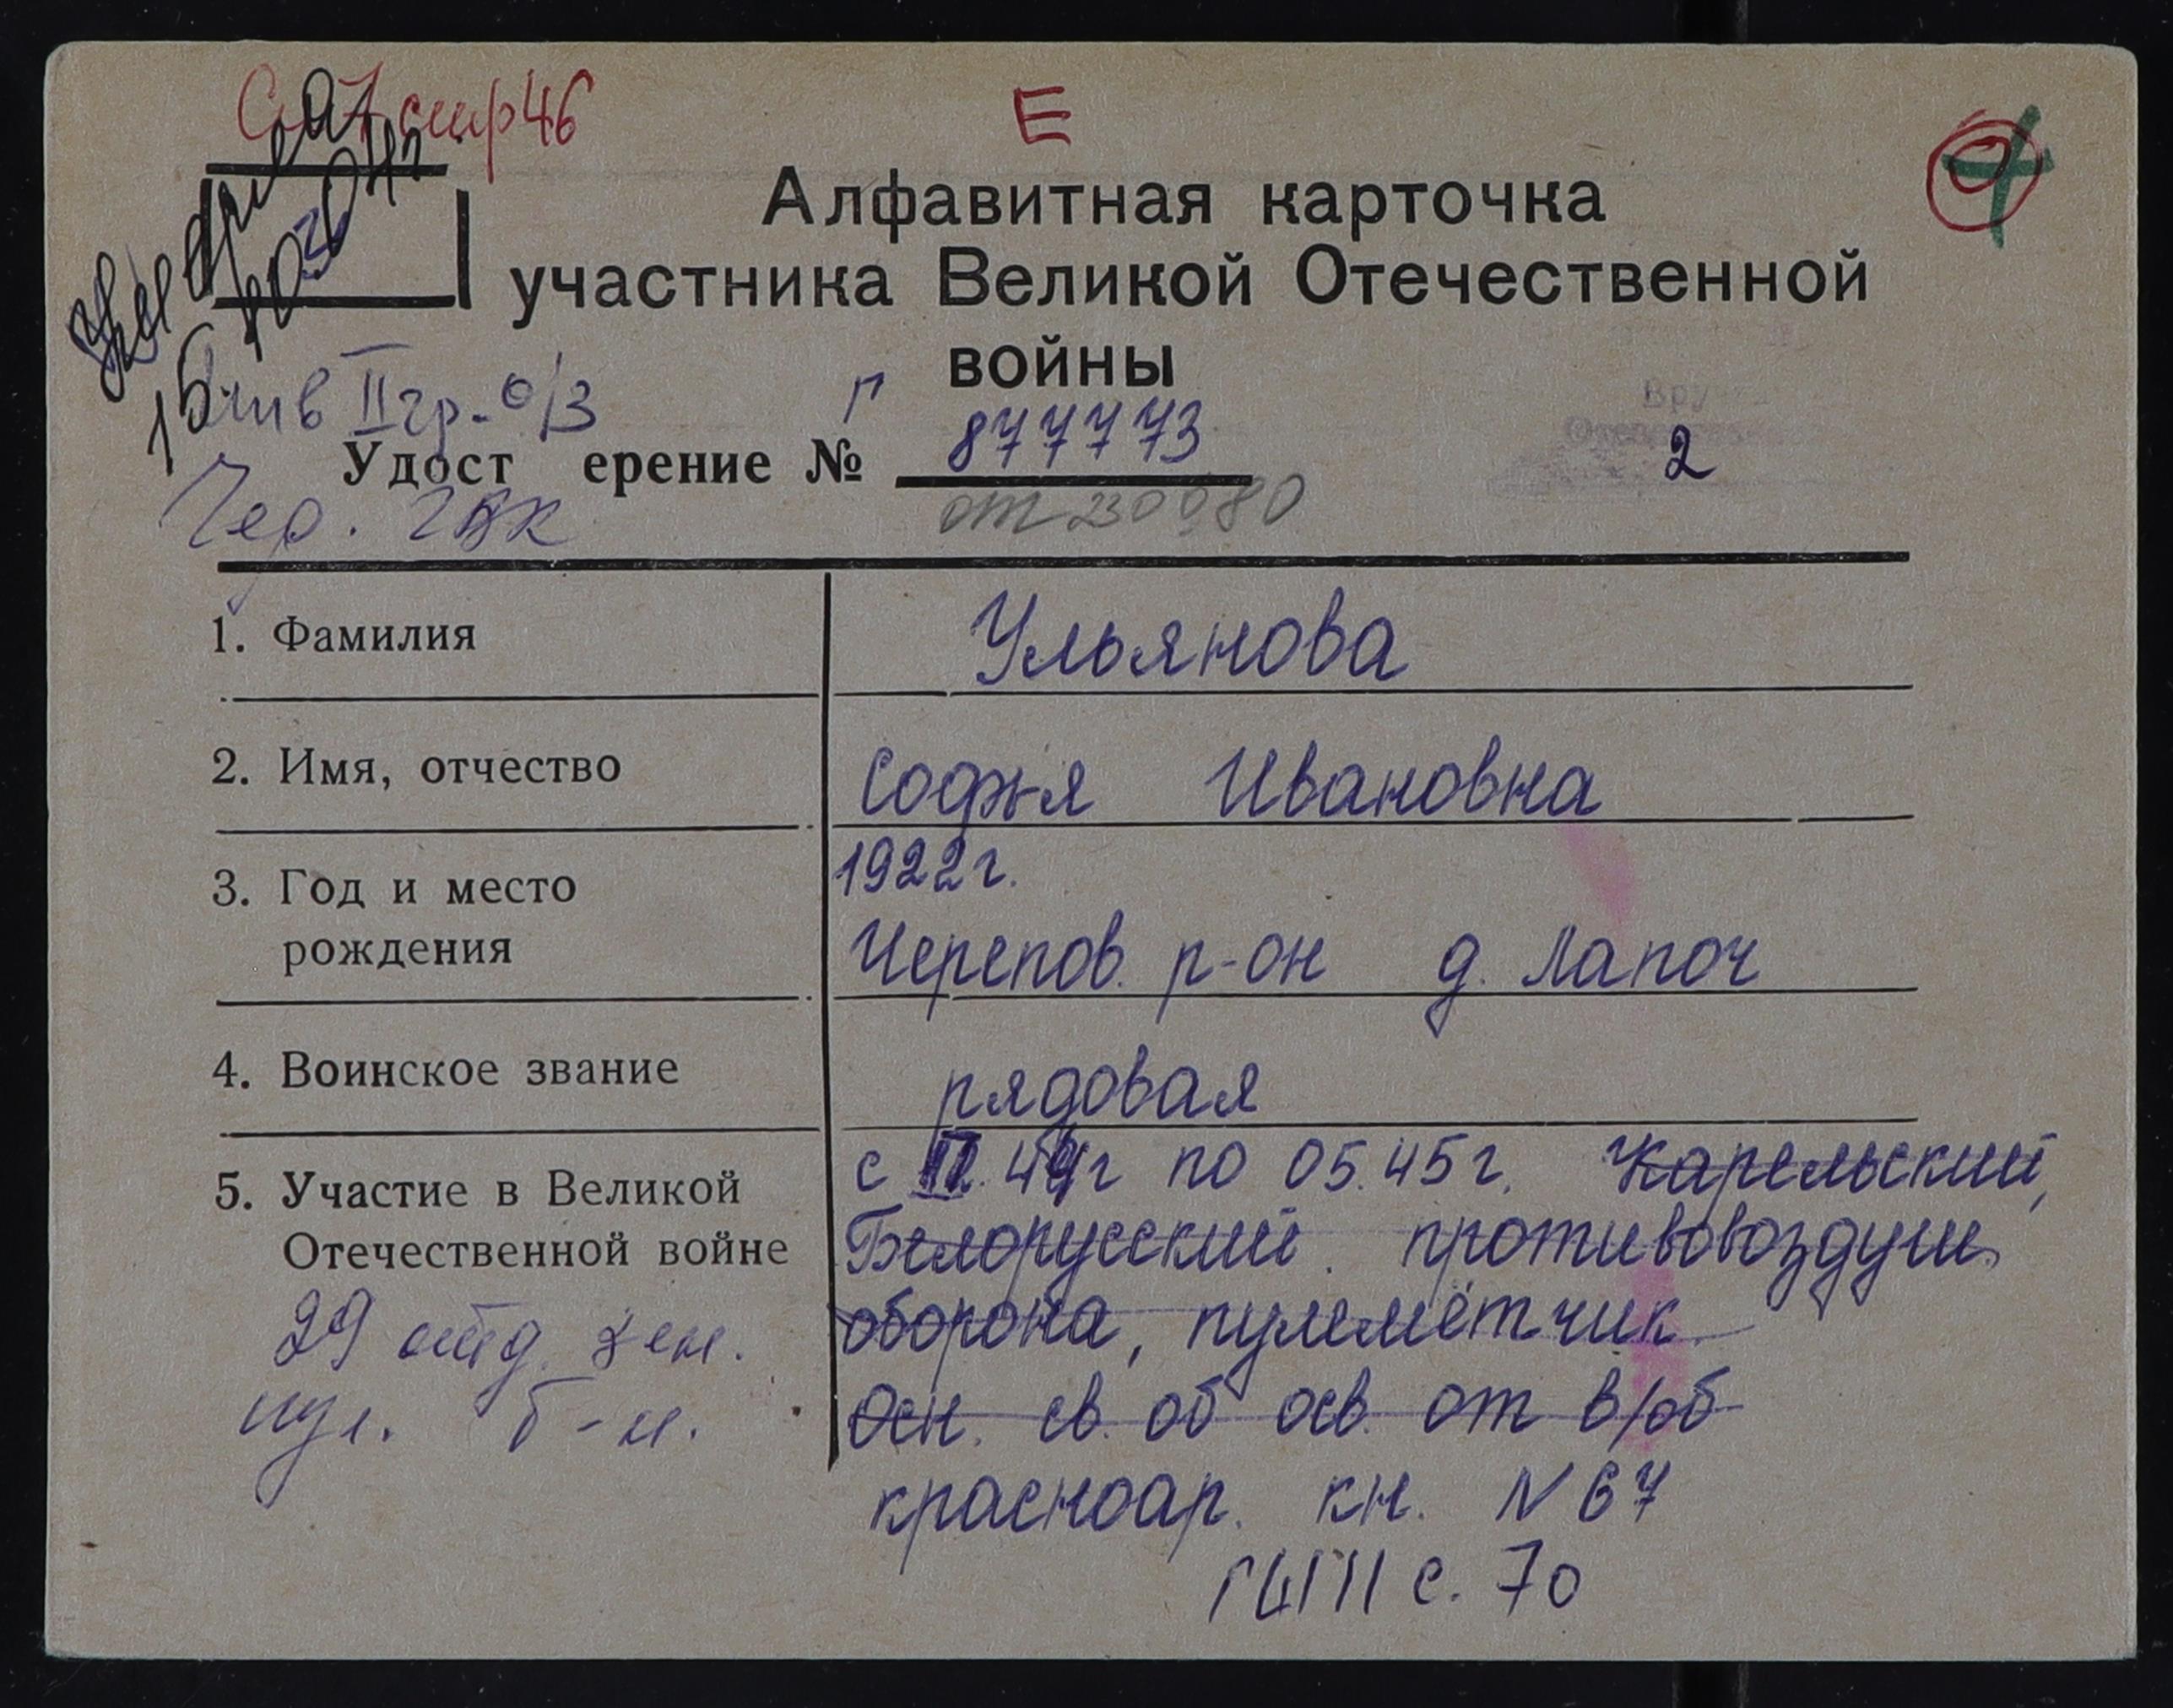 стр 46
Е
Алфавитная карточка
участника Великой Отечественной
войны
инв II гр. о/з
Г
877773
2
Удост ерение №
Чер. ГВК
от 230980
1. Фамилия
Ульянова
2. Имя, отчество
Софья Ивановна
3. Год и место
рождения
1922г.
Черепов. р-он д. Лапоч
4. Воинское звание
рядовая
5. Участие в Великой
Отечественной войне
с 44г по 05.45г. Карельский,
Белорусский. противовоздуш.
оборона, пулемётчик
29 отд. зен.
пул. б-н.
Осн. св. об осв. от в/об
красноар. кн. N 67
с. 70